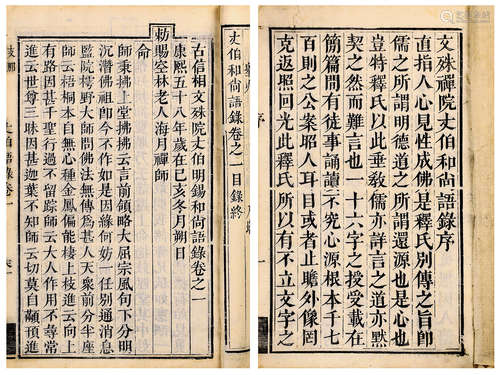 文殊禪院丈伯和尚語錄序
直指人心見性成佛是釋氏別傳之旨即
儒之所謂明德道之所謂還源也是心也
豈特釋氏以此垂教儒亦詳言之道亦黙
契之然而難言也一十六字之授受載在
簡篇間有徒事誦讀不究心源根本千七
百則之公案昭人耳目或者止贍外像罔
克返照回光此釋氏所以有不立文字之
序
丈伯和尚語錄卷之一目錄終
古信相文殊院丈伯明錫和尚語錄卷之一
康熙五十八年歲在己亥冬月朔日
勅賜空林老人海月禪師
命
師秉拂上堂拂拂云言前領略大屈宗風句下分明
沉潛佛祖即今不作如是因緣何妨一任別通消息
監院野大師問法無傳為甚人天衆前分半座
師云梧桐本自無心種金鳳偏能棲上枝進云向上
有路因甚千聖行過不留踪師云大人作用不尋常
進云世尊三昧因甚迦葉不知師云切莫自顢頇進
丈伯語錄 卷一